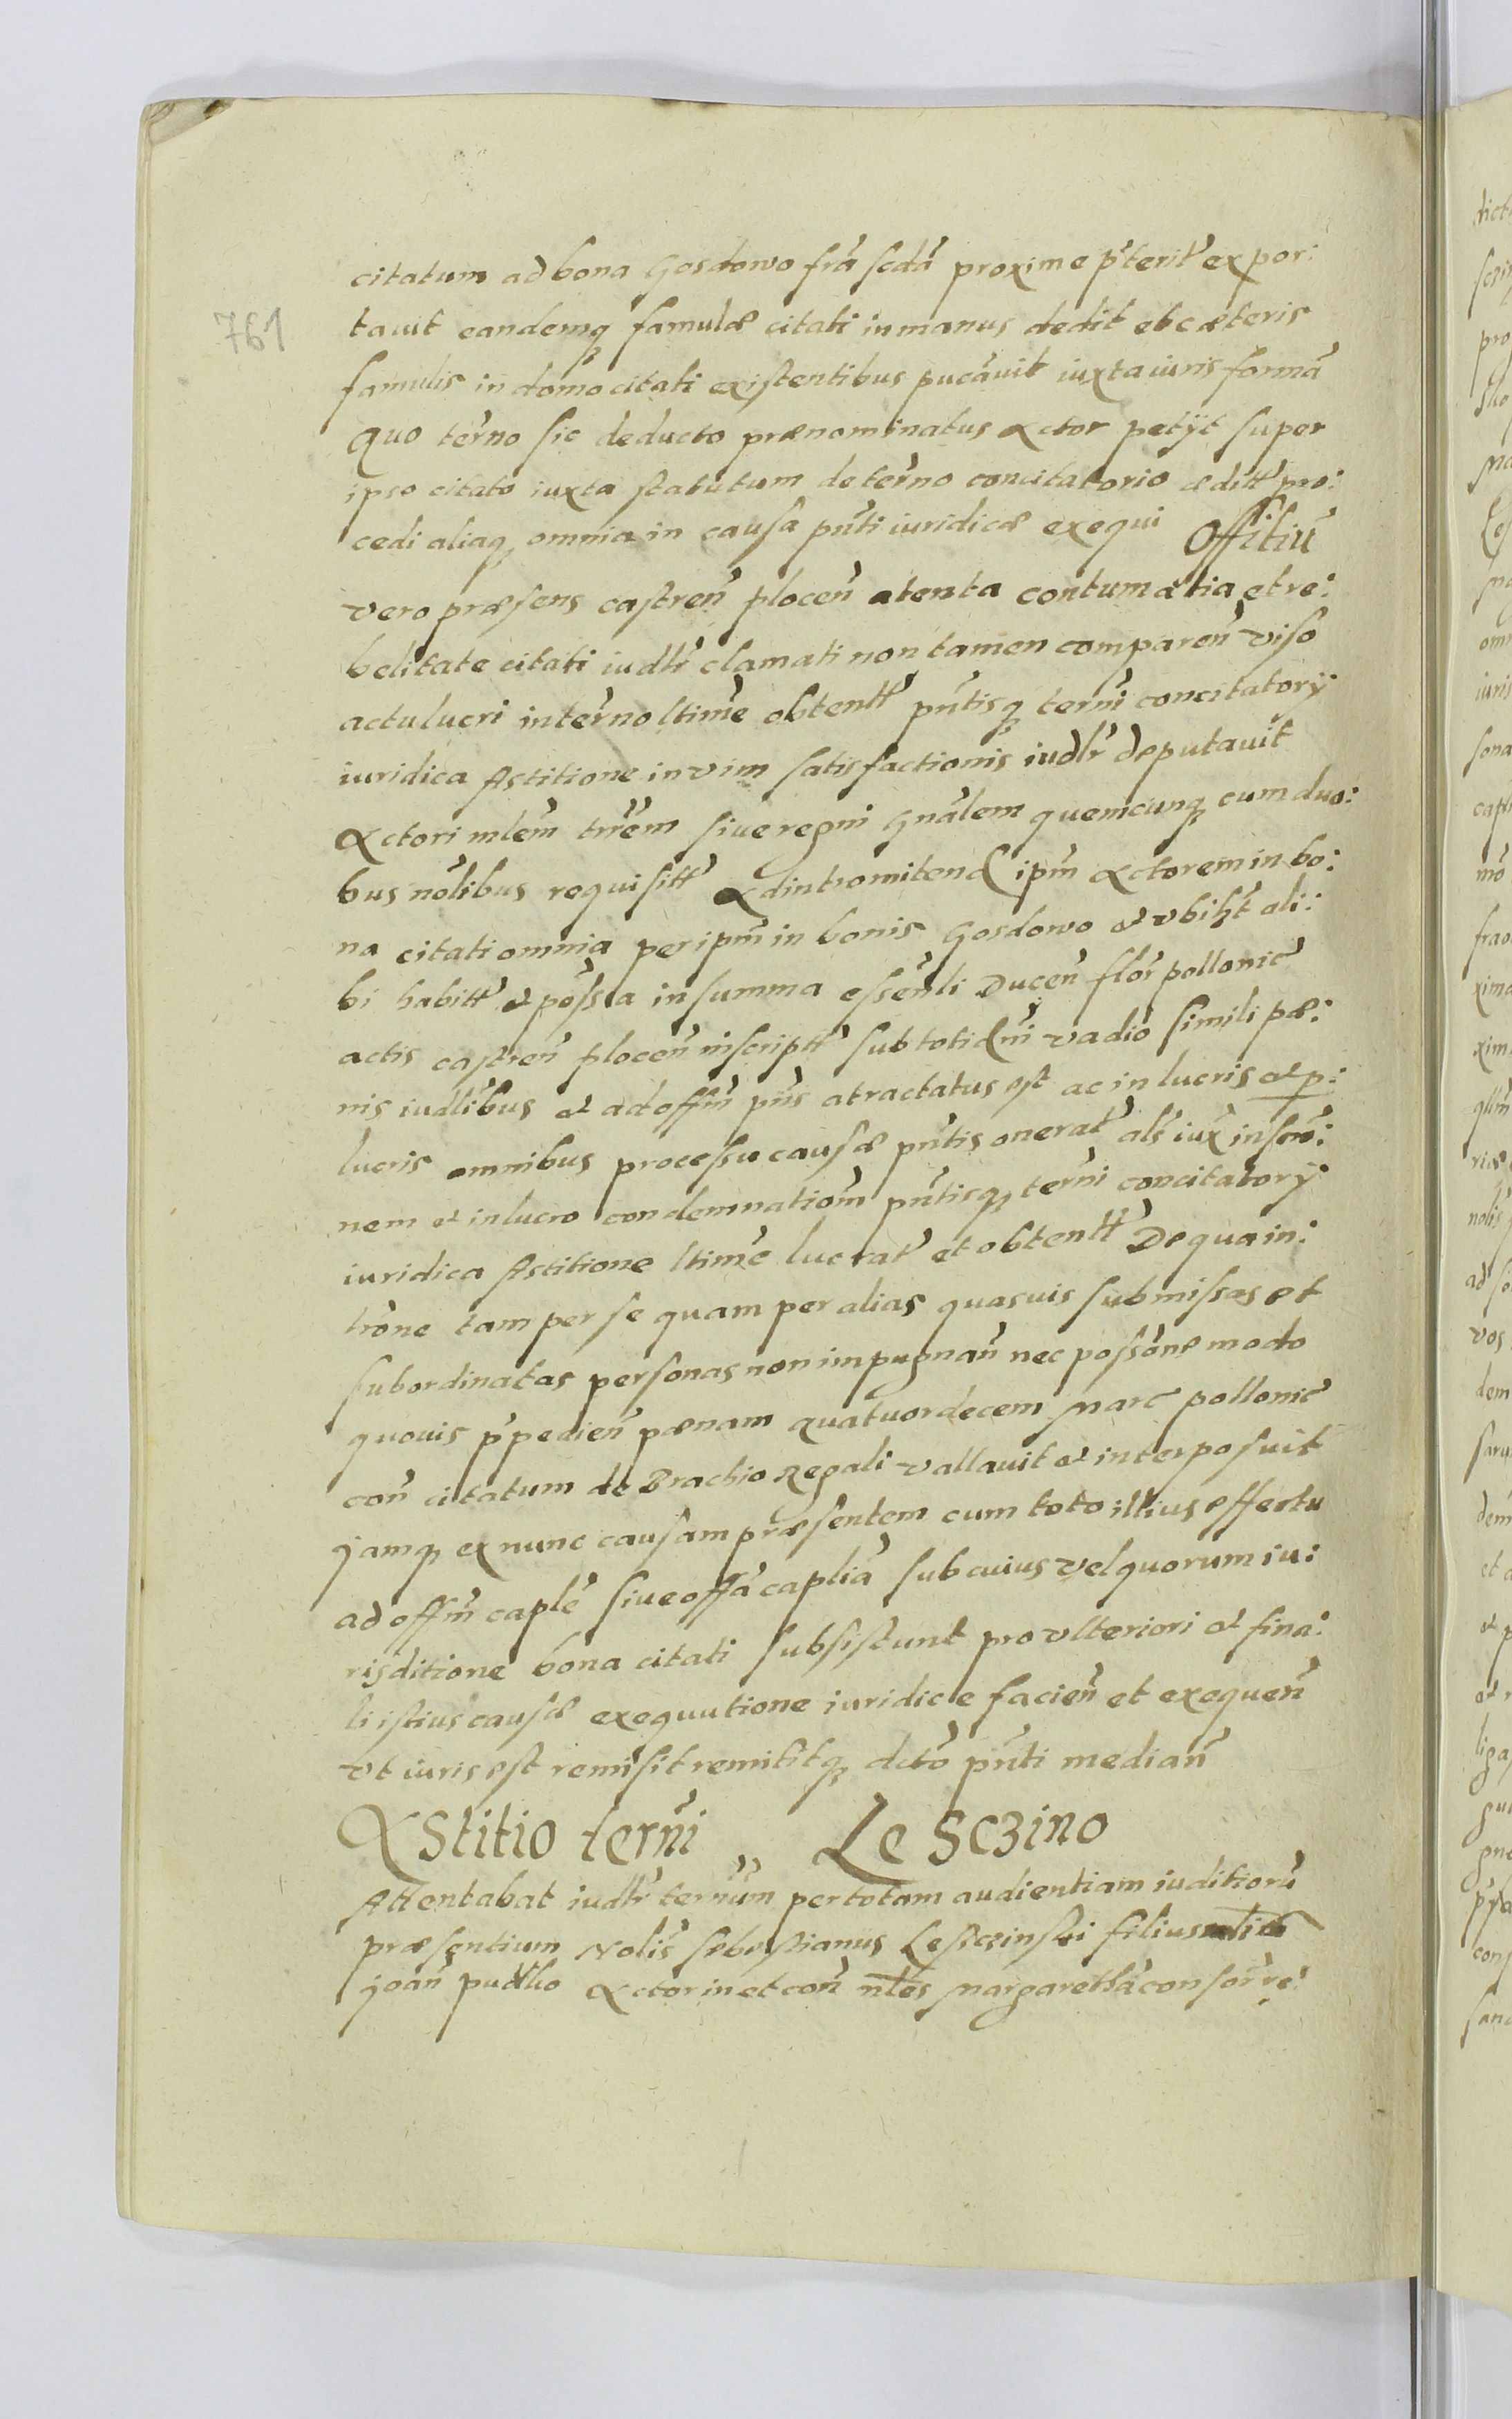 citatum ad bona Gosdowo fr̃a scd̃a proxime p̃terit̃ expor:
761
tauit eandemq̃ famulæ citati in manus dedit et cæteris
famulis in domo citati existentibus pucãuit iuxta iuris formã
Quo ter̃no sic deducto prænominatus Actor petÿt super
ipso citato iuxta statutum de ter̃no concitatorio ædítt̃ pro:
cedi aliaq̃ omnia in causa pñti iuridicæ exequi Offitiũ
vero præsens castreñ ploceñ atenta contumatia et re:
belitate citati iudlr̃ clamati non tamen compareñ viso
actu lucri in ter̃no ltimẽ obtentt̃ pñtisq̃ ter̃ni concitatorÿ
iuridica Astitione in vim satisfactionis iudlr̃ deputauit
Actori mlem̃ trr̃em siue regni Gnãlem quemcunq̃ cum duo:
bus nõlibus requisitt̃ Ad intromitend ipm̃ Actorem in bo:
na citati omnia per ipm̃ in bonis Gosdowo et vbiht̃ ali:
bi habitt̃ et põssa in summa essẽnli Duceñ flor̃ pollonic̃
actis castreñ ploceñ inscriptt̃ sub totidm̃ vadio simili pæ:
nis iudlibus et ad offm̃ pñs atractatus est ac in lucris et p:
lucris omnibus processu causæ pñtis onerat̃ als̃ iux̃ inscrõ:
nem et in lucro condemnatiom̃ pñtisq̃ ter̃ni concitatorÿ
iuridica Astitione ltimẽ lucrat̃ et obtentt̃ De qua in:
trõne tam per se quam per alias quasuis submissas et
subordinatas personas non impugnañ nec possõne modo
quouis p̃pedieñ pænam quatuordecem Marc̃ pollonic̃
coñ citatum de Brachio Regali vallauit et interposuit
Jamq̃ ex nunc causam præsentem cum toto illius effectu
ad offm̃ caplẽ siue offã capliã sub cuius vel quorum iu:
risditione bona citati subsistunt pro vlteriori et fina:
li istius causæ exequutione iuridicæ facieñ et exequeñ
vt iuris est remisit remititq̃ dctõ pñti mediañ
Astitio ter̃ni Le sczino
Attentabat iudlr̃ ter̃num per totam audientiam iuditiorũ
præsentium Nolis̃ sebestianus Lesczinski filius
Joañ pudlo Actor in et coñ nles̃ Margarethã consor̃ re: